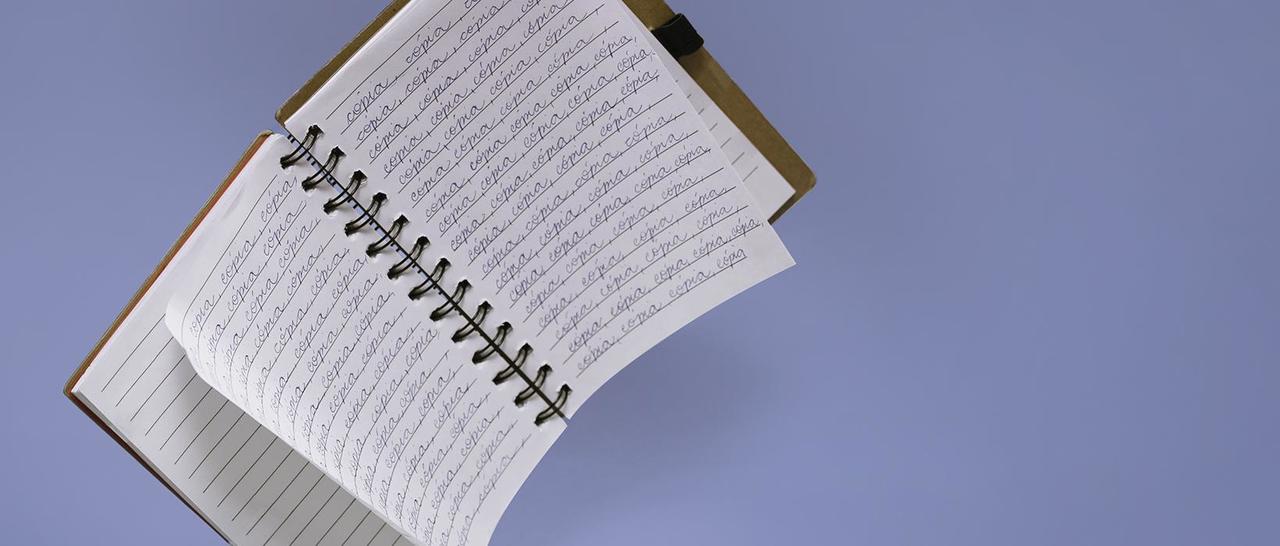 cópia, cópia, cópia,
cópia, cópia, cópia,
cópia, cópia, cópia,
cópia, cópia, cópia,
cópia, cópia, cópia,
cópia, cópia, cópia,
cópia, cópia, cópia,
cópia, cópia, cópia,
cópia, cópia, cópia,
cópia, cópia, cópia,
cópia, cópia, cópia,
cópia, cópia, cópia,
cópia, cópia,
cópia, cópia,
cópia, cópia,
cópia, cópia
cópia, cópia,
cópia, cópia, cópia, cópia,
cópia, cópia, cópia, cópia,
cópia, cópia, cópia, cópia,
cópia, cópia, cópia, cópia,
cópia, cópia, cópia, cópia, cópia,
cópia, cópia, cópia, cópia, cópia,
cópia, cópia, cópia, cópia, cópia,
cópia, cópia, cópia, cópia,
cópia, cópia, cópia, cópia,
cópia, cópia, cópia, cópia,
cópia, cópia, cópia, cópia, cópia,
cópia, cópia, cópia, cópia,
cópia, cópia, cópia, cópia,
cópia, cópia, cópia, cópia,
cópia, cópia, cópia, cópia, cópia,
cópia, cópia, cópia, cópia